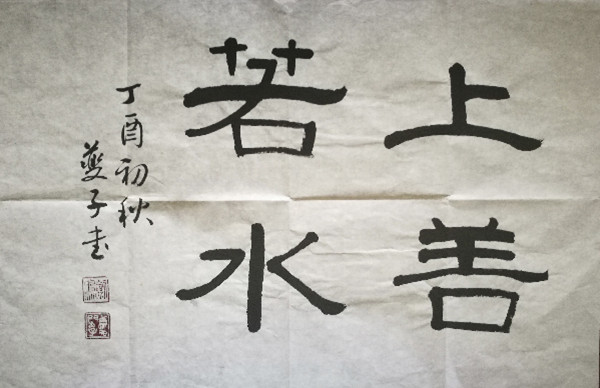 上善
若水
丁酉初秋
子书